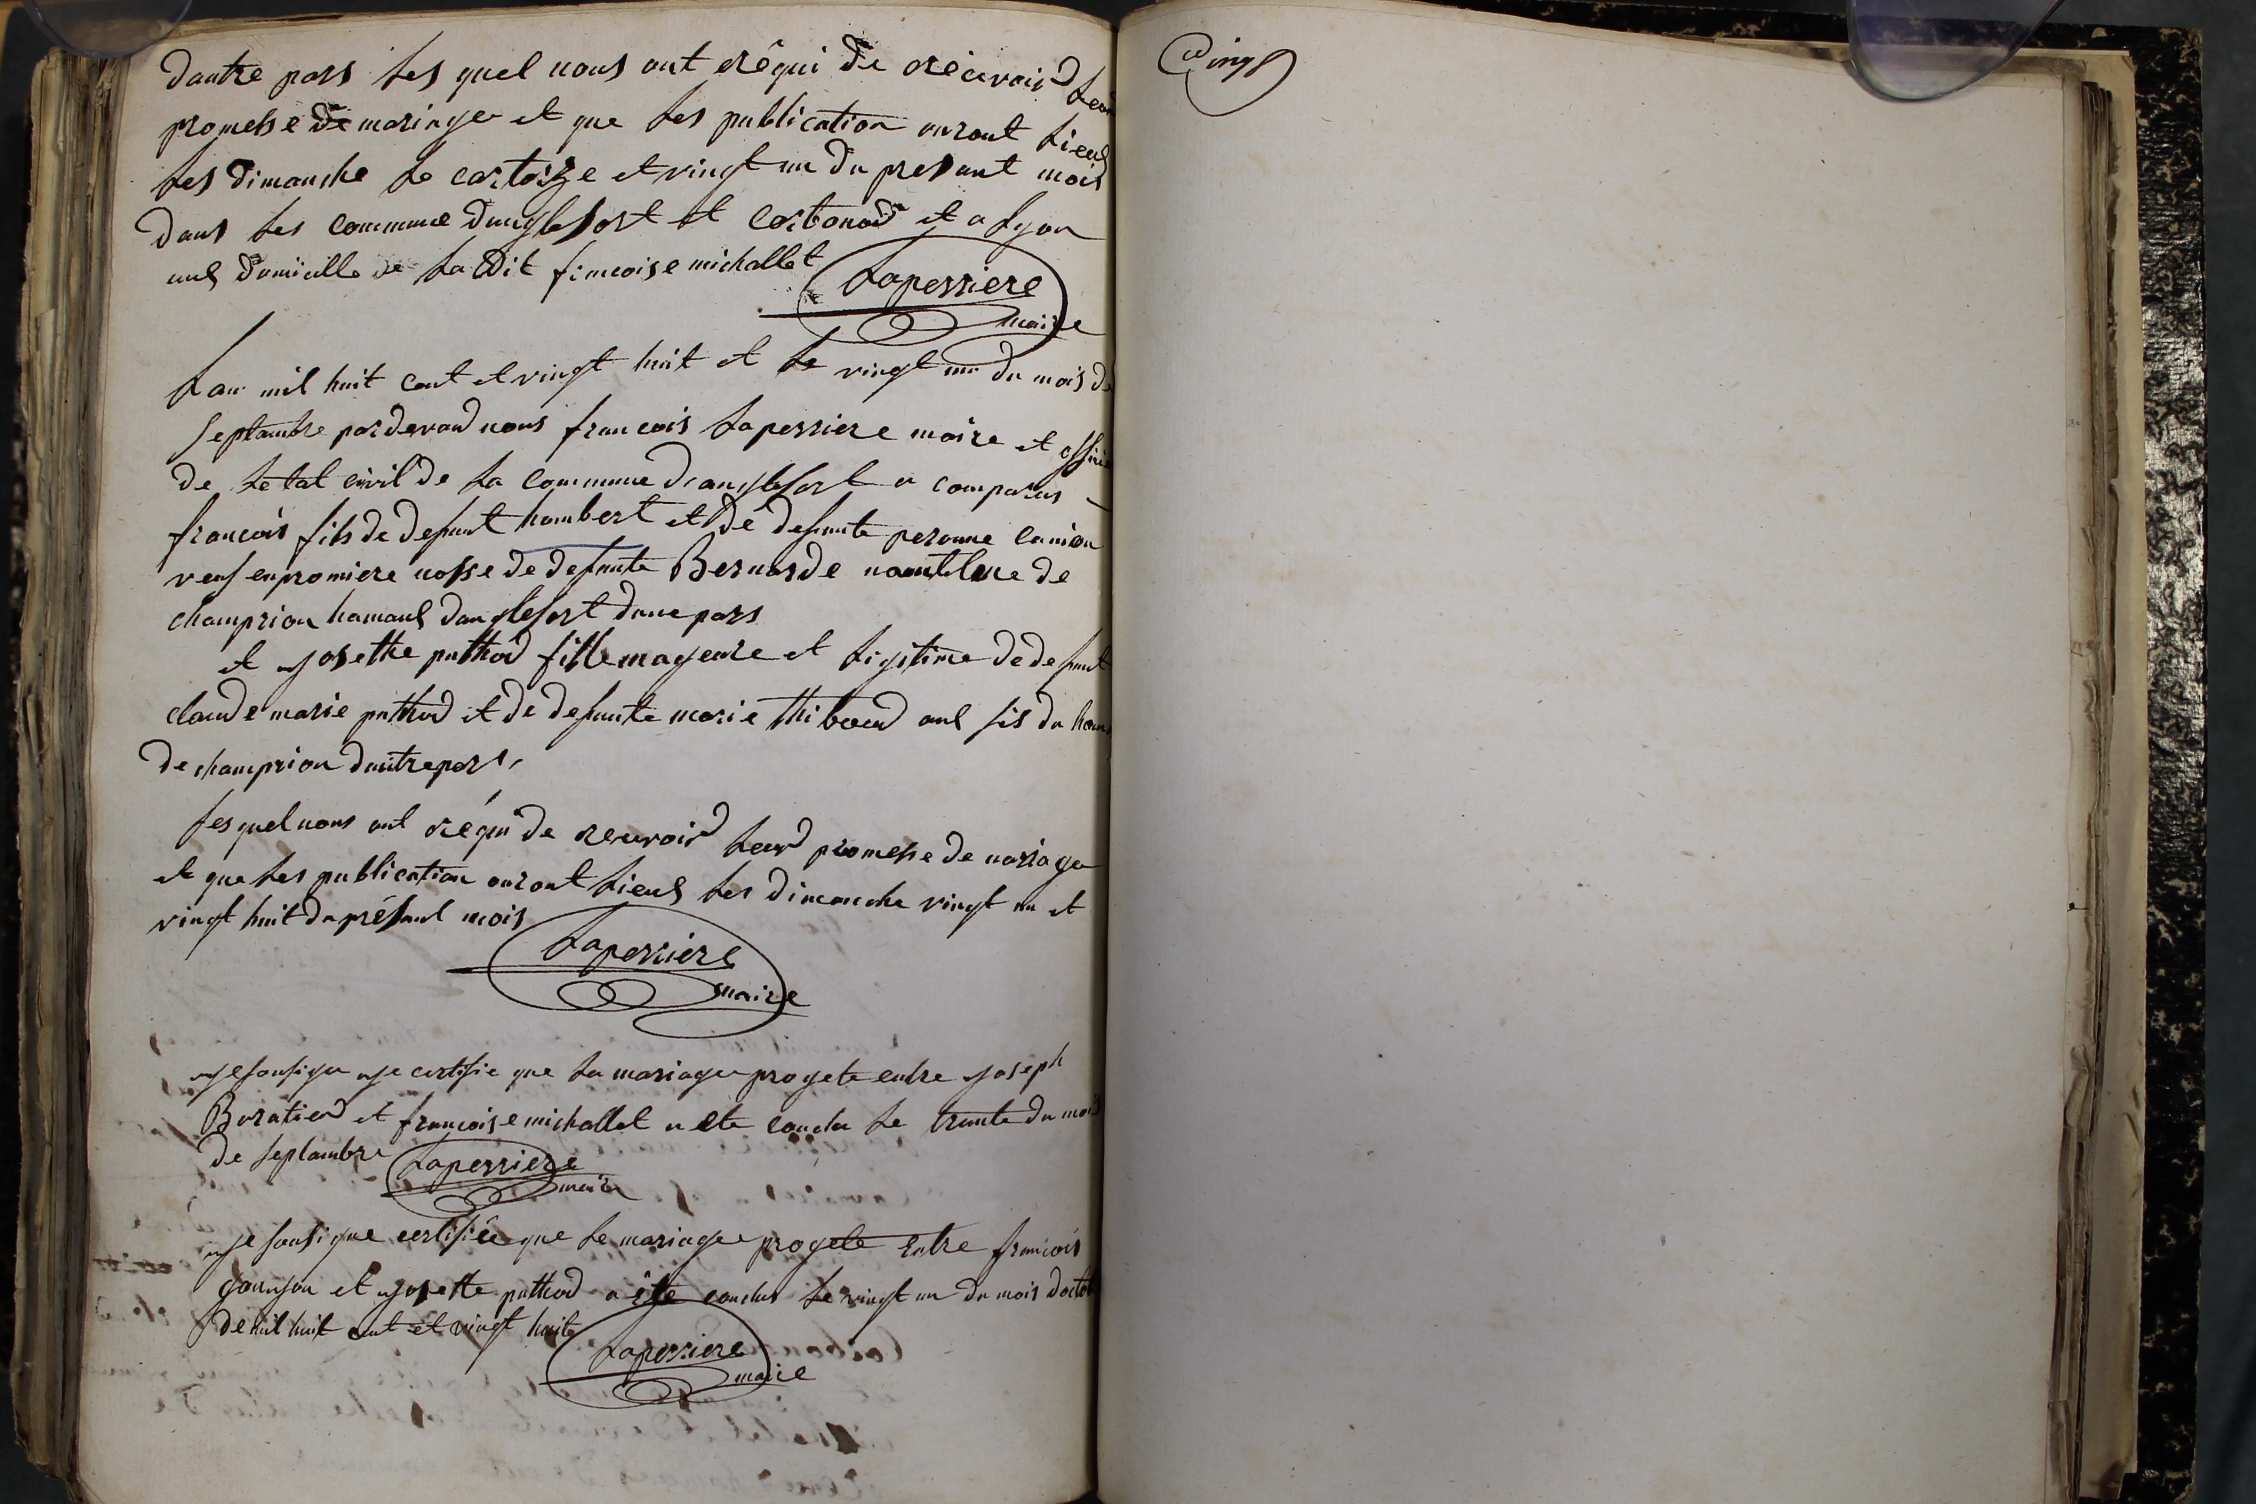 dautre pars les quel nous ont réqui de récevoir leur
promesse de mariage et que les publication auront lieus
les dimanche le cartorze et vingt un du presant mois
dans les commune danglefort et corbonod et a lyon
aus domicille de la dit fincoise michallet
Laperriere
maire
Lan mil huit cent et vingt huit et le vingt un du mois de
septambre pardevand nous francois Laperriere maire et officie
de letat civil de la commune danglefort a comparus
francois fils de defunt humbert et de defunte peronne
veuf en promiere nosse de defunte Bernarde de
champrion hamaus danglefort dune pars
et josethe puthod fille mageure et ligitime de defunt
claude marie puthod et de defunte marie thiboud aus sis du ham
de champrion dautre pars,
les quel nous ont réqui de recevoir leur promesse de mariage
et que les publication auront lieus les dimanche vingt un et
vingt huit du présant mois
Laperriere
maire
je sousigu je certifie que le mariage progete entre joseph
Boratier et francoise michallet a ete conclu le trante du mois
de septambre Laperriere
maire
je sousigue certifiée que le mariage progete entre francois
gourjon et josette puthod a ete conclus le vingt un du mois doctob
de mil huit cent et vingt huite
Laperriere
maire
vingt